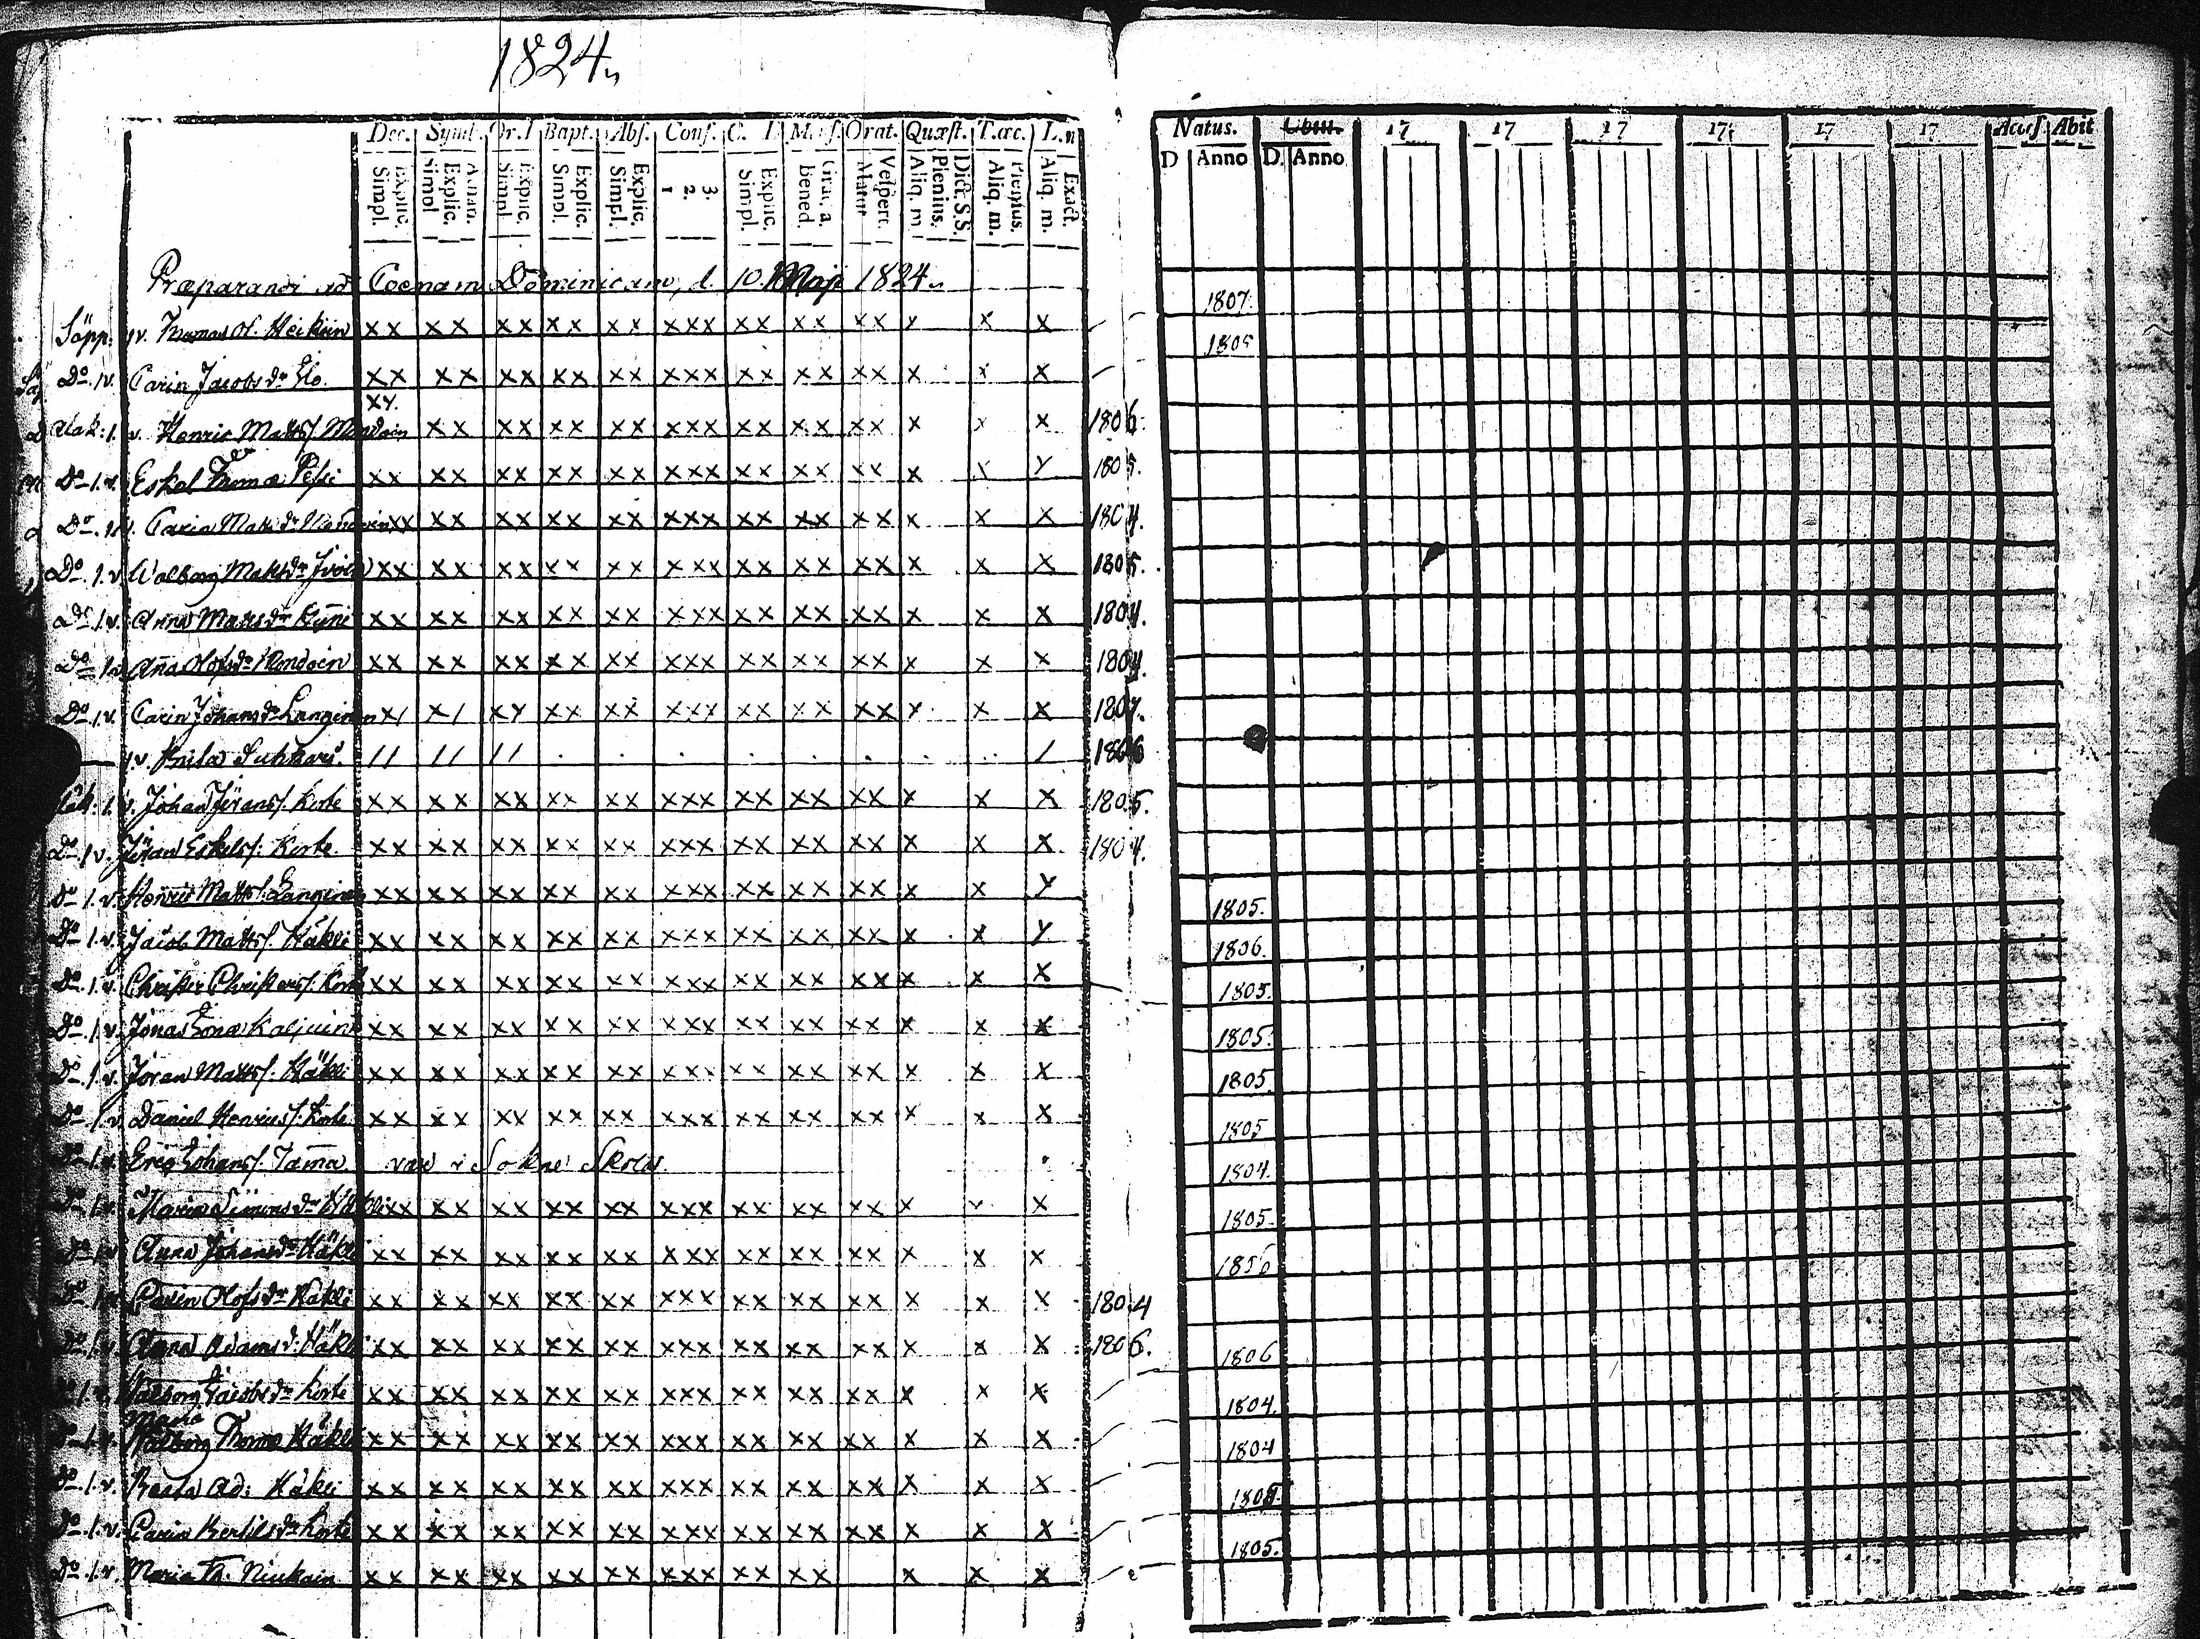 1824.
Dec. Symb. Or. D Bapt. Abs. Conf. C. D Mens. Orat. Quæst. Tac. L. n
Natus. Obiit. 17 17 17 17 17 17 Access. Abit
Explic. Simpl. Athan. Explic. Simpl. Explic. Simpl. Explic. Simpl. Explic. Simpl. 3. 2. 1 Explic. Simpl. Grat. a. Bened. Vespert. Matut. Dict. S.S. Plenius. Aliq. m. Plenius. Aliq. m. Exact. Aliq. m.
D Anno D. Anno
Præparandi ad Coenam Dominicam, d. 10 Maji 1824.
Säpp: 1v. Thomas Ol. Heikin xx xx xx xx xx xxx xx xx xx x x x 1807.
Do 1v. Carin Jacobs dr Elo. xx xx xx xx xx xxx xx xx xx x x x 1805
xx.
1. v. Henric Matts s. xx xx xx xx xxx xx xx xx x x x 1806.
Do 1.v. Eskel Thomæ xx xx xx xx xx xxx xx xx xx x x x 1805.
Do 1v. Caria Matts dr xx xx xx xx xx xxx xx xx xx x x x 1804.
Do. 1.v Walborg Matts dr xx xx xx xx xx xxx xx xx xx x x x 1805.
Do 1.v. Anna Matts dr xx xx xx xx xx xxx xx xx xx x x x 1804.
Do 1v Ana Olofs dr xx xx xx xx xx xxx xx xx xx x x x 1804.
Do 1.v. Carin Johans dr Langinen x/ x/ xx xx xx xxx xx xx xx x x x 1807.
1.v. // // // . . . . . . . . / 1806
1.v. Johan Jörans s. Korte xx xx xx xx xx xxx xx xx xx x x x 1805.
Do 1v. Jöran Eskels s. Korte xx xx xx xx xx xxx xx xx xx x x x 1804.
Do 1.v. Henric Matts s. Langinen xx xx xx xx xx xxx xx xx xx x x x 1805.
Do 1.v. Jacob Matts s. Häkli xx xx xx xx xx xxx xx xx xx x x x 1806.
Do 1.v. Christer Christers s. Korte xx xx xx xx xx xxx xx xx xx x x x 1805.
Do 1.v. Jonas Jonæ xx xx xx xx xx xxx xx xx xx x x x 1805.
Do 1.v. Jöran Matts s. Häkli xx xx xx xx xx xxx xx xx xx x x x 1805
Do 1.v Daniel Henrics s. Korte xx xx xx xx xx xxx xx xx xx x x x 1805
Do 1.v. Eric Johans s. var i Sokne Skola 1804.
Do 1.v. Maria Simons dr Häkli xx xx xx xx xx xxx xx xx xx x x x 1805.
Do 1.v Anna Johans dr Häkli xx xx xx xx xx xxx xx xx xx x x x
Do 1.v Carin Olofs dr Häkli xx xx xx xx xx xxx xx xx xx x x x 1804
Do 1.v. Anna Adams d. Häkli xx xx xx xx xx xxx xx xx xx x x x 1806.
Do 1.v. Walborg Jacobs dr Korte xx xx xx xx xx xxx xx xx xx x x x 1806
Maria
Do 1.v. Walborg Thomæ Häkli xx xx xx xx xx xxx xx xx xx x x x 1804.
Do 1.v. Ad: Häkli xx xx xx xx xx xxx xx xx xx x x x 1804
Do 1.v. Carin Bertils dr Korte xx xx xx xx xx xxx xx xx xx x x x
Do 1.v. Maria Th. xx xx xx xx xx xxx xx xx x x x 1805.